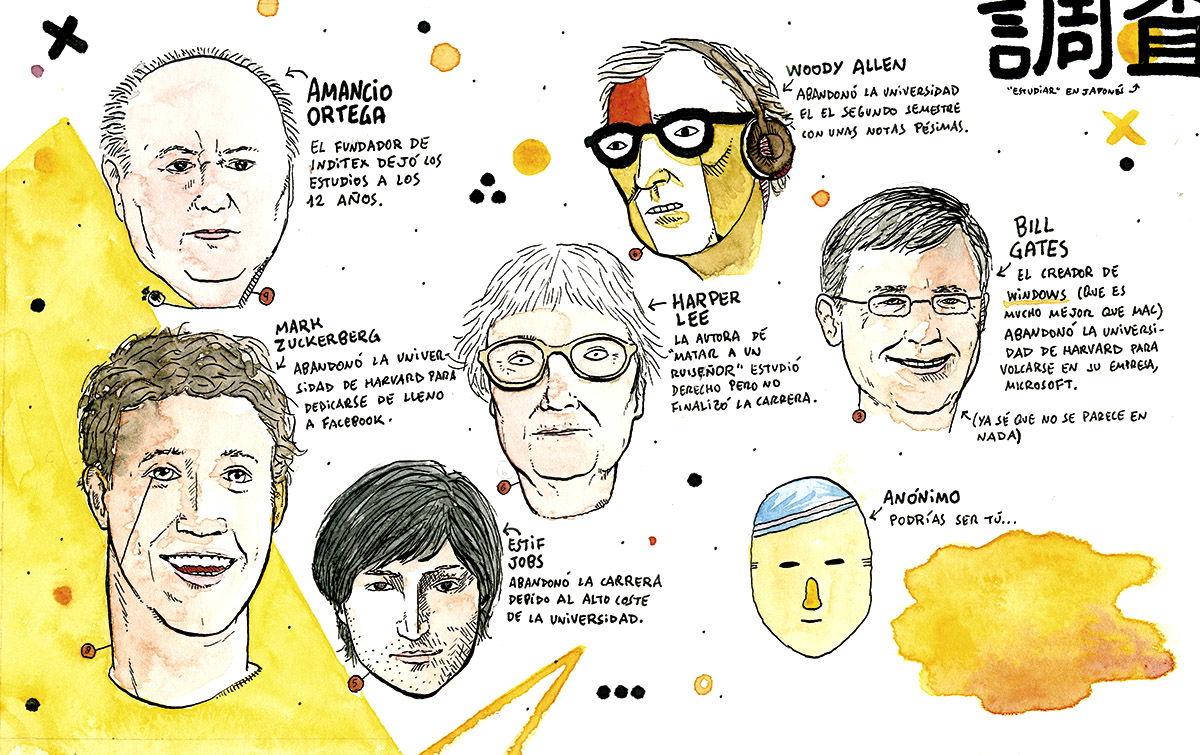 調査
"ESTUDIAR" EN JAPONÉS
AMANCIO
ORTEGA
EL FUNDADOR DE
INDITEX DEJÓ LOS
ESTUDIOS A LOS
12 AÑOS.
WOODY ALLEN
ABANDONÓ LA UNIVERSIDAD
EL EL SEGUNDO SEMESTRE
CON UNAS NOTAS PÉSIMAS.
BILL
GATES
EL CREADOR DE
WINDOWS (QUE ES
MUCHO MEJOR QUE MAC)
ABANDONÓ LA UNIVERSI-
DAD DE HARVARD PARA
VOLCARSE EN SU EMPRESA,
MICROSOFT.
(YA SÉ QUE NO SE PARECE EN
NADA)
HARPER
LEE
LA AUTORA DE
"MATAR A UN
RUISEÑOR" ESTUDIÓ
DERECHO PERO NO
FINALIZÓ LA CARRERA.
MARK
ZUCKERBERG
ABANDONÓ LA UNIVER-
SIDAD DE HARVARD PARA
DEDICARSE DE LLENO
A FACEBOOK.
ESTIF
JOBS
ABANDONÓ LA CARRERA
DEBIDO AL ALTO COSTE
DE LA UNIVERSIDAD.
ANÓNIMO
PODRÍAS SER TÚ...
3
5